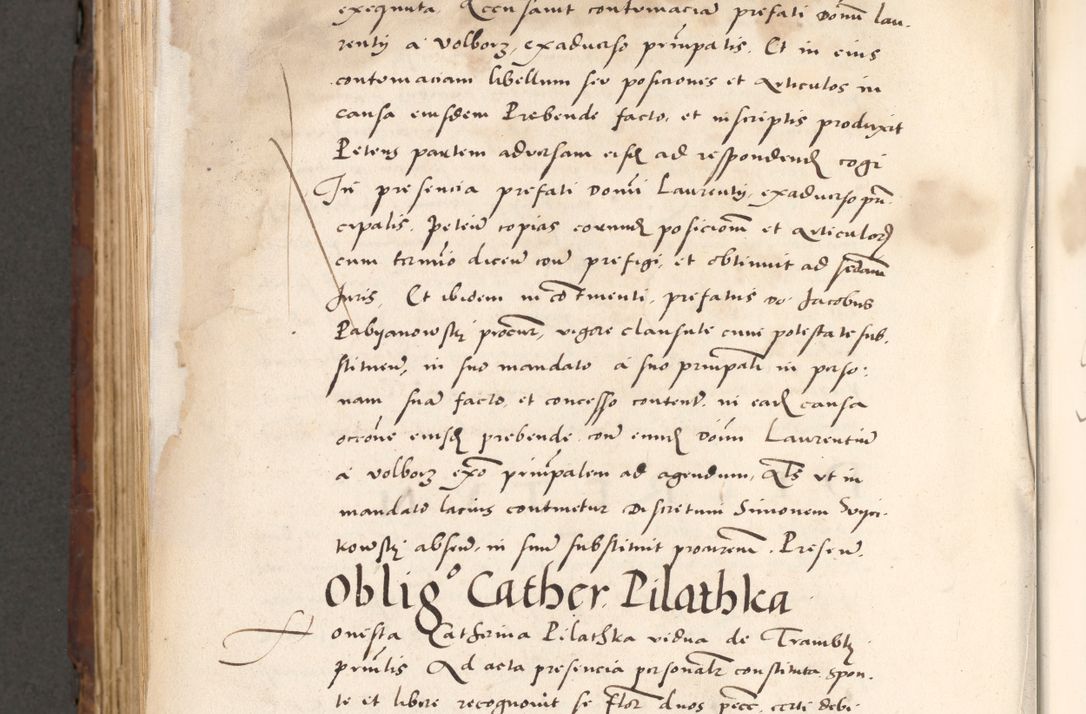 exequuta. Accusavit contumaciam prefati domini Lau-
rentii a Volborz, exadverso principalis. Et in eius
contumaciam libellum seu posiciones et articulos in
causa eiusdem Prebende facto, et in scriptis produxit
Petens partem adversam eisdem ad respondendum cogi
In presencia prefati domini Laurentii, exadverso prin-
cipalis. Petentis copias eorundem posicionum et articulorum
cum termino dicendi contra prefigi, et obtinuit ad secundam
Juris. Et ibidem in continenti, prefatus do. Jacobus
Pabyanowsky procurator, vigore clausule cum potestate sub-
stituendi, in suo mandato a suo principali in perso-
nam suam facto, et concesso contente in eadem causa
occasione eiusdem prebende contra eundem dominum Laurentium
a Volborz ex adverso principalem ad agendum, Aliis ut in
mandato lacius continetur Discretum Simonem
kowsky absentem in suum substituit procuratorem. Presente
Oblig° Cather. Pilathka
Honesta Catherina Pilathka vidua de
principalis Ad acta presencia personaliter constituta, spon-
te et libere recognovit se Flor. duos pecc. certi debi-